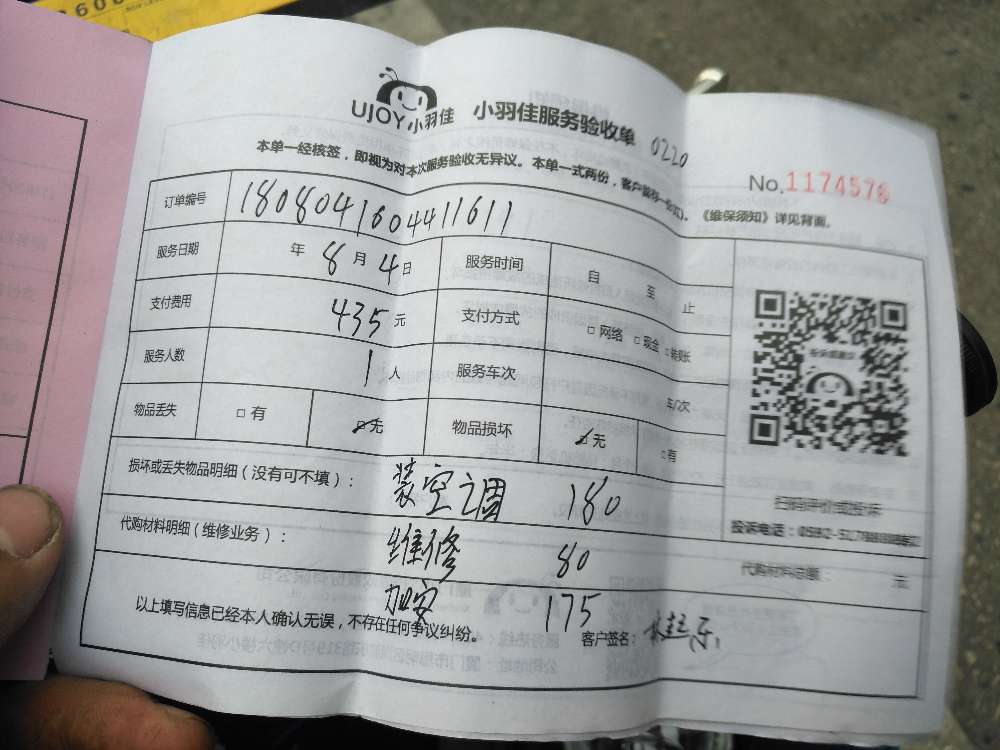 UJOY 小羽佳 小羽佳服务验收单 0220
No.1174578
本单一经核签，即视为对本次服务验收无异议。本单一式两份，客户留存一份(红)。《维保须知》详见背面。
订单编号 1808041604411611
服务日期 年 8 月 4 日 服务时间 自 至 止
支付费用 435 元 支付方式 □ 网络 □ 现金 □ 转账
服务人数 1 人 服务车次 车/次
物品丢失 □ 有 ☑ 无 物品损坏 ☑ 无 □ 有
损坏或丢失物品明细（没有可不填）： 装空调 180
扫描到评价或投坏
投诉电话：0592-517
代购材料明细（维修业务）： 维修 80 代购材料总额： 元
加安 175
以上填写信息已经本人确认无误，不存在任何争议纠纷。 客户签名：